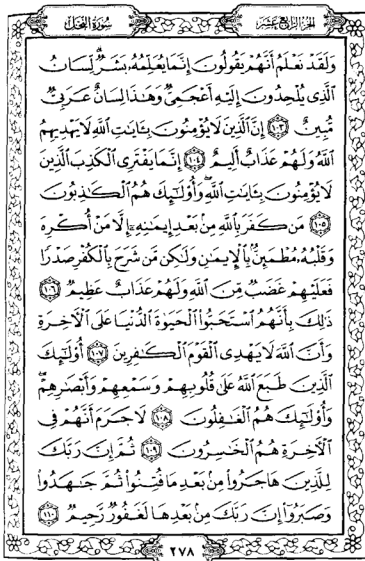 الجزء الرابع عشر
سورة النحل
وَلَقَدْ نَعْلَمُ أَنَّهُمْ يَقُولُونَ إِنَّمَا يُعَلِّمُهُۥ بَشَرٌ ۗ لِّسَانُ
ٱلَّذِى يُلْحِدُونَ إِلَيْهِ أَعْجَمِىٌّ وَهَٰذَا لِسَانٌ عَرَبِىٌّ
مُّبِينٌ ١٠٣ إِنَّ ٱلَّذِينَ لَا يُؤْمِنُونَ بِـَٔايَٰتِ ٱللَّهِ لَا يَهْدِيهِمُ
ٱللَّهُ وَلَهُمْ عَذَابٌ أَلِيمٌ ١٠٤ إِنَّمَا يَفْتَرِى ٱلْكَذِبَ ٱلَّذِينَ
لَا يُؤْمِنُونَ بِـَٔايَٰتِ ٱللَّهِ ۖ وَأُو۟لَٰٓئِكَ هُمُ ٱلْكَٰذِبُونَ
١٠٥ مَن كَفَرَ بِٱللَّهِ مِنۢ بَعْدِ إِيمَٰنِهِۦٓ إِلَّا مَنْ أُكْرِهَ
وَقَلْبُهُۥ مُطْمَئِنٌّۢ بِٱلْإِيمَٰنِ وَلَٰكِن مَّن شَرَحَ بِٱلْكُفْرِ صَدْرًا
فَعَلَيْهِمْ غَضَبٌ مِّنَ ٱللَّهِ وَلَهُمْ عَذَابٌ عَظِيمٌ ١٠٦
ذَٰلِكَ بِأَنَّهُمُ ٱسْتَحَبُّوا۟ ٱلْحَيَوٰةَ ٱلدُّنْيَا عَلَى ٱلْءَاخِرَةِ
وَأَنَّ ٱللَّهَ لَا يَهْدِى ٱلْقَوْمَ ٱلْكَٰفِرِينَ ١٠٧ أُو۟لَٰٓئِكَ
ٱلَّذِينَ طَبَعَ ٱللَّهُ عَلَىٰ قُلُوبِهِمْ وَسَمْعِهِمْ وَأَبْصَٰرِهِمْ ۖ
وَأُو۟لَٰٓئِكَ هُمُ ٱلْغَٰفِلُونَ ١٠٨ لَا جَرَمَ أَنَّهُمْ فِى
ٱلْءَاخِرَةِ هُمُ ٱلْخَٰسِرُونَ ١٠٩ ثُمَّ إِنَّ رَبَّكَ
لِلَّذِينَ هَاجَرُوا۟ مِنۢ بَعْدِ مَا فُتِنُوا۟ ثُمَّ جَٰهَدُوا۟
وَصَبَرُوٓا۟ إِنَّ رَبَّكَ مِنۢ بَعْدِهَا لَغَفُورٌ رَّحِيمٌ ١١٠
٢٧٨